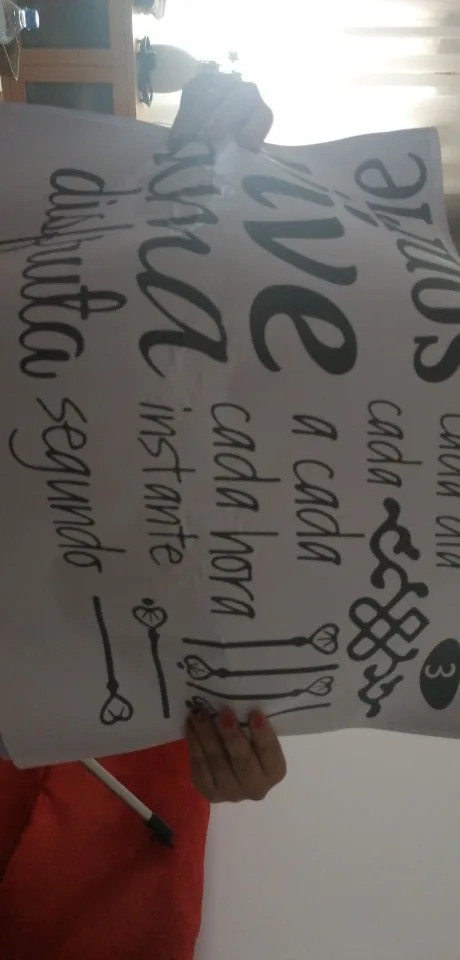 cada día
3
cada
a cada
cada hora
ama instante
disfruta segundo